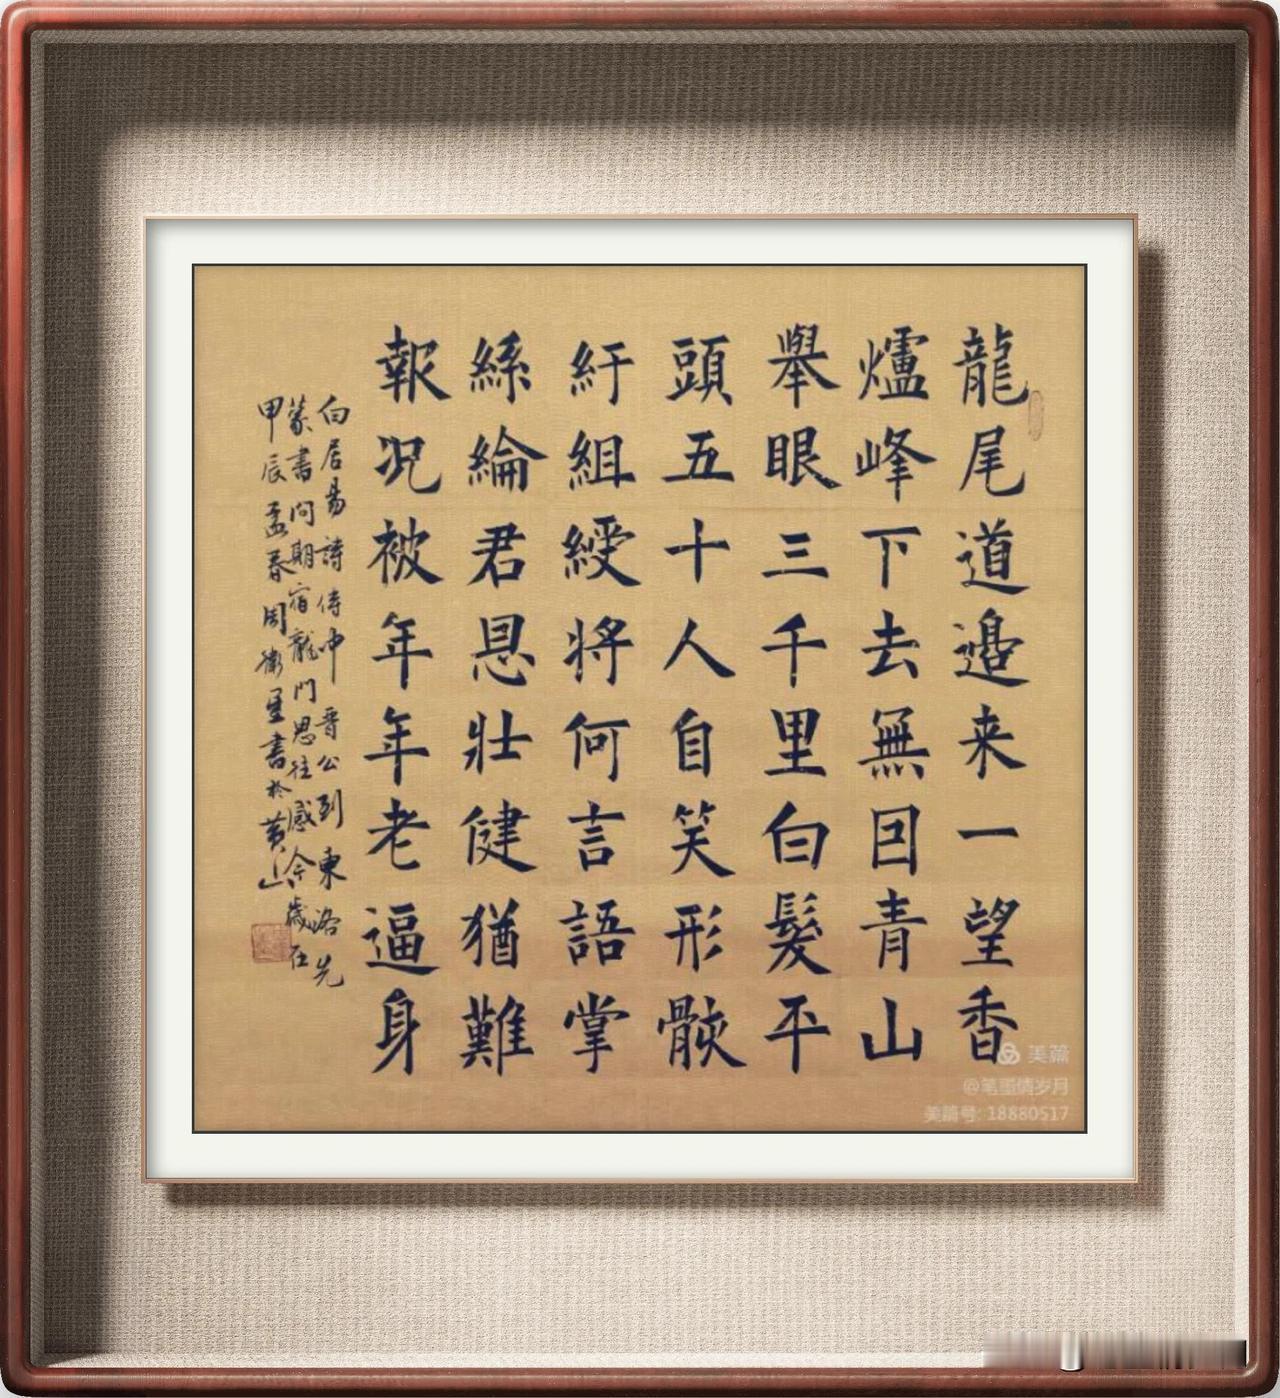 龍尾道邊来一望香
爐峰下去無回青山
舉眼三千里白髮平
頭五十人自笑形骸
紆組綬将何言語掌
絲綸君恩壯健猶難
報况被年年老逼身
白居易詩侍中晋公到東洛先
蒙書问期宿龍门思往感今歲在
甲辰孟春周衛星書於黄山
美篇
@笔墨情岁月
美篇号: 18880517